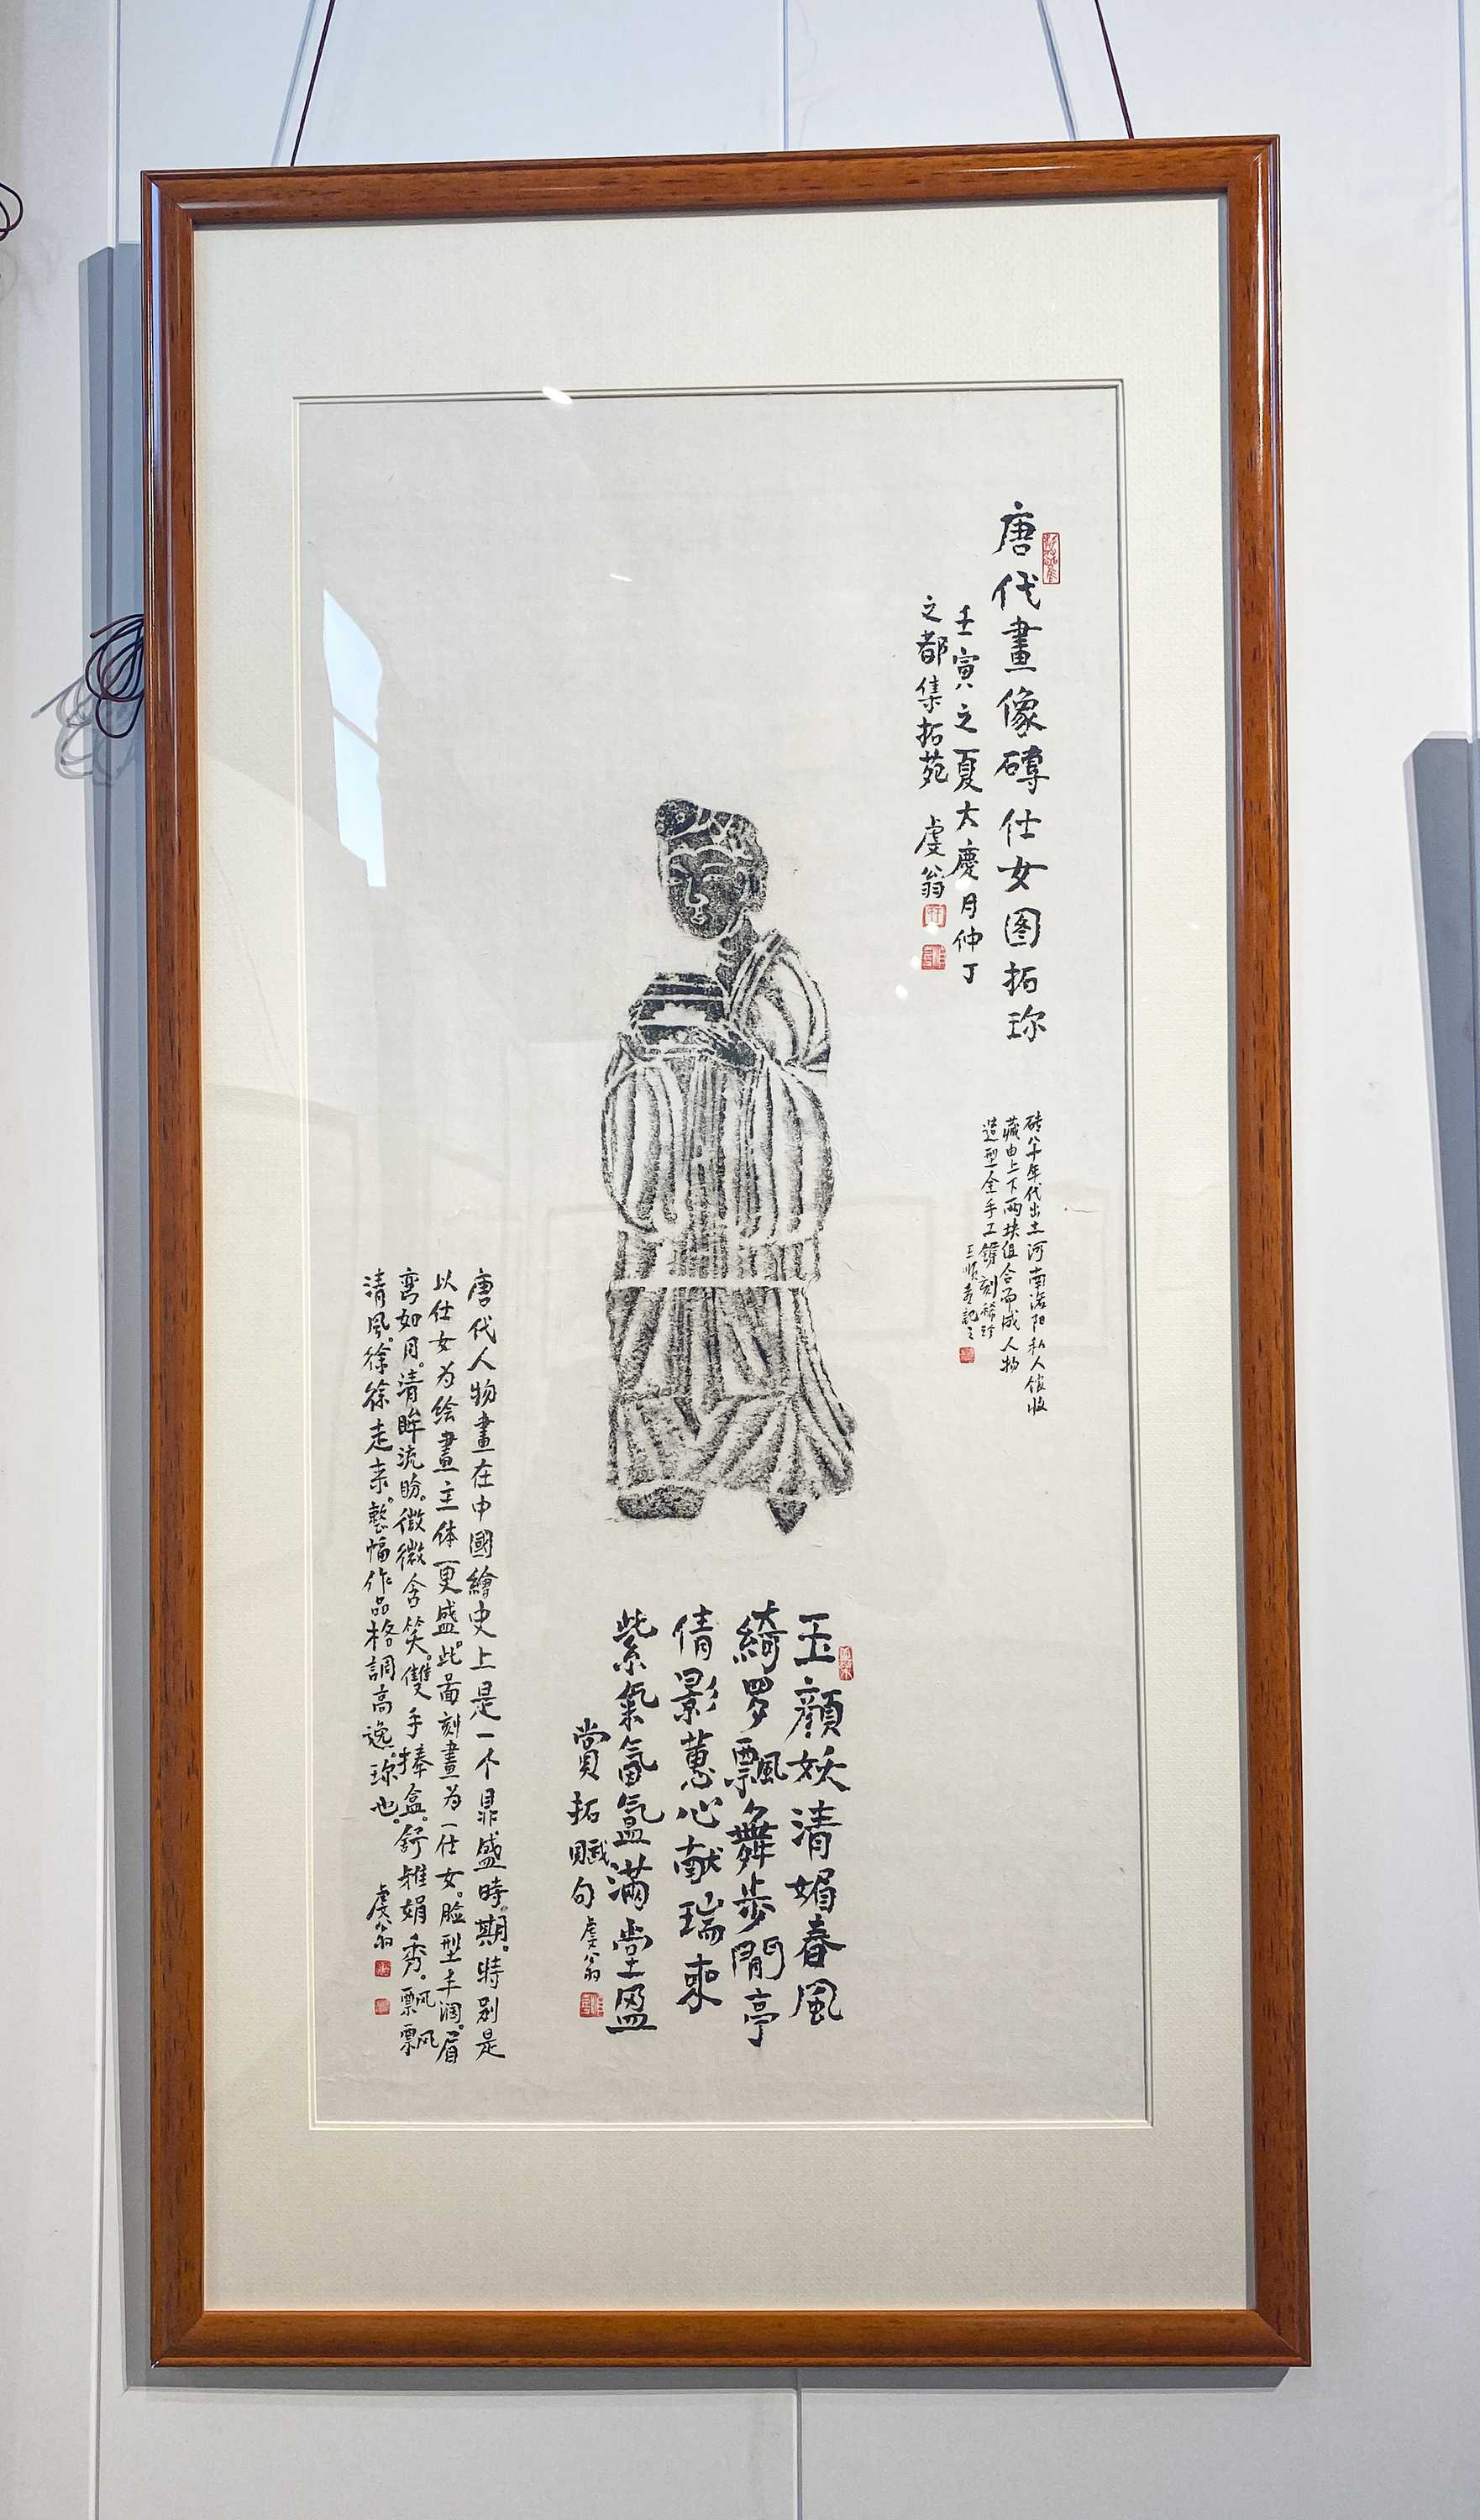 唐代畫像磚仕女图拓珎
壬寅之夏大慶月仲丁
之都集拓苑 虔翁
砖八十年代出土河南洛阳私人馆收
藏由上下两块组合而成人物
造型全手工鐫刻稀珍
王順 記之
玉顔妖清媚春風
綺罗飄舞步閒亭
倩影蕙心献瑞来
紫氣氤氲滿堂盈
賞拓賦句 虔翁
唐代人物畫在中國繪史上是一个鼎盛時期。特别是
以仕女为绘畫主体更盛。此啚刻畫为一仕女。脸型丰润。眉
弯如月。清眸流盼。微微含笑。雙手捧盒。舒雅娟秀。飘飘
清風。徐徐走来。整幅作品格調高逸珎也。 虔翁